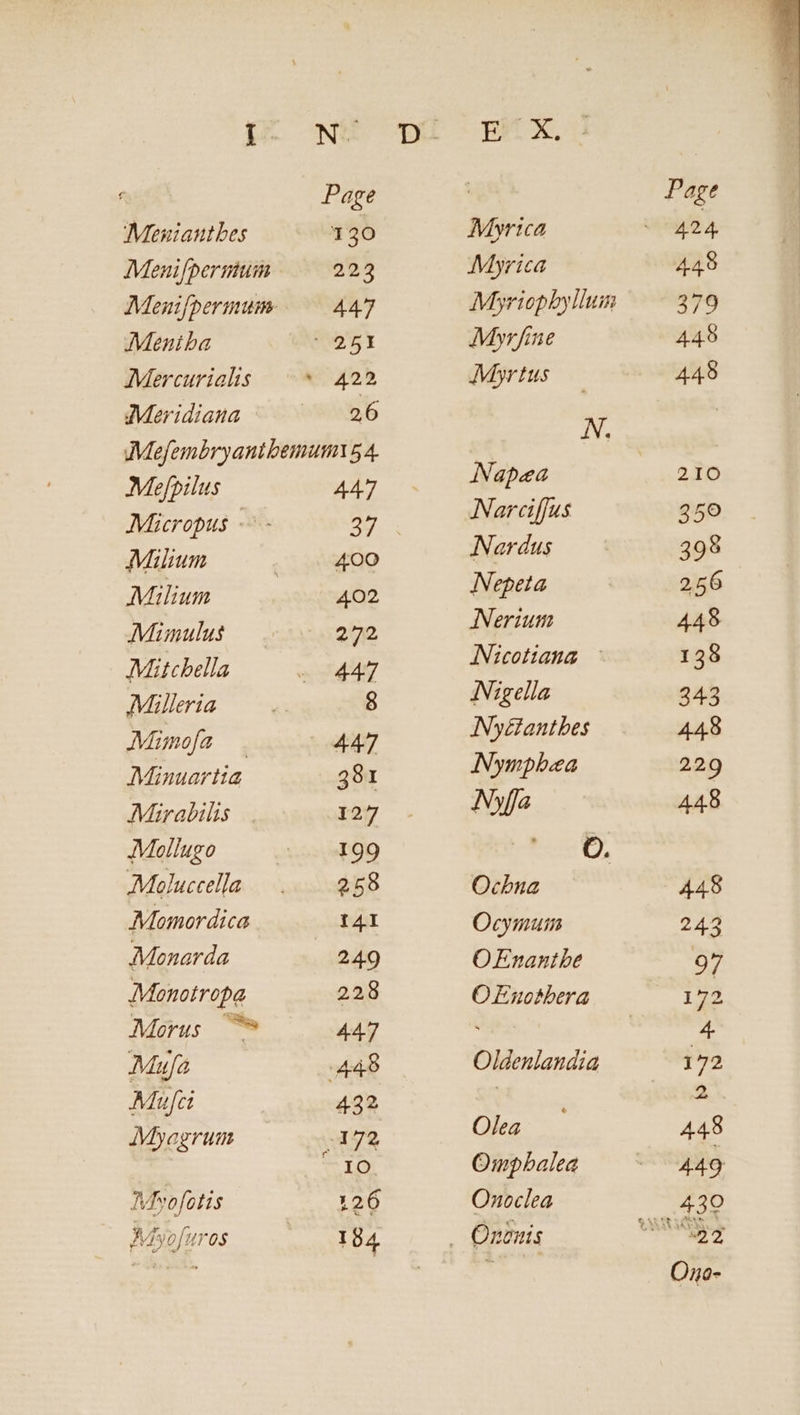 I N D E X.
Page
Menianthes 130
Meniſpermum 223
Meniſpermum 447
Mentha 251
Mercurialis 422
Meridiana 26
Meſembryanthemum 154
Meſpilus 447
Micropus - 37
Milium 400
Milium 402
Mimulus 272
Mitchella 447
Milleria 8
Mimoſa 447
Minuartia 381
Mirabilis 127
Mollugo 199
Moluccella 258
Momordica 141
Monarda 249
Monotropa 228
Morus 447
Muſa 448
Muſci 432
Myagrum 172
10
Myoſotis 126
Myoſuros 184
Page
Myrica 424
Myrica 448
Myriophyllum 379
Myrſine 448
Myrtus 448
N.
Napæa 210
Narciſſus 350
Nardus 398
Nepeta 256
Nerium 448
Nicotiana 138
Nigella 343
Nyctanthes 448
Nymphæa 229
Nyſſa 448
O.
Ochna 448
Ocymum 243
OEnanthe 97
OEnothera 172
4
Oldenlandia 172
2
Olea 448
Omphalea 449
Onoclea 430
Ononis 22
Ono-